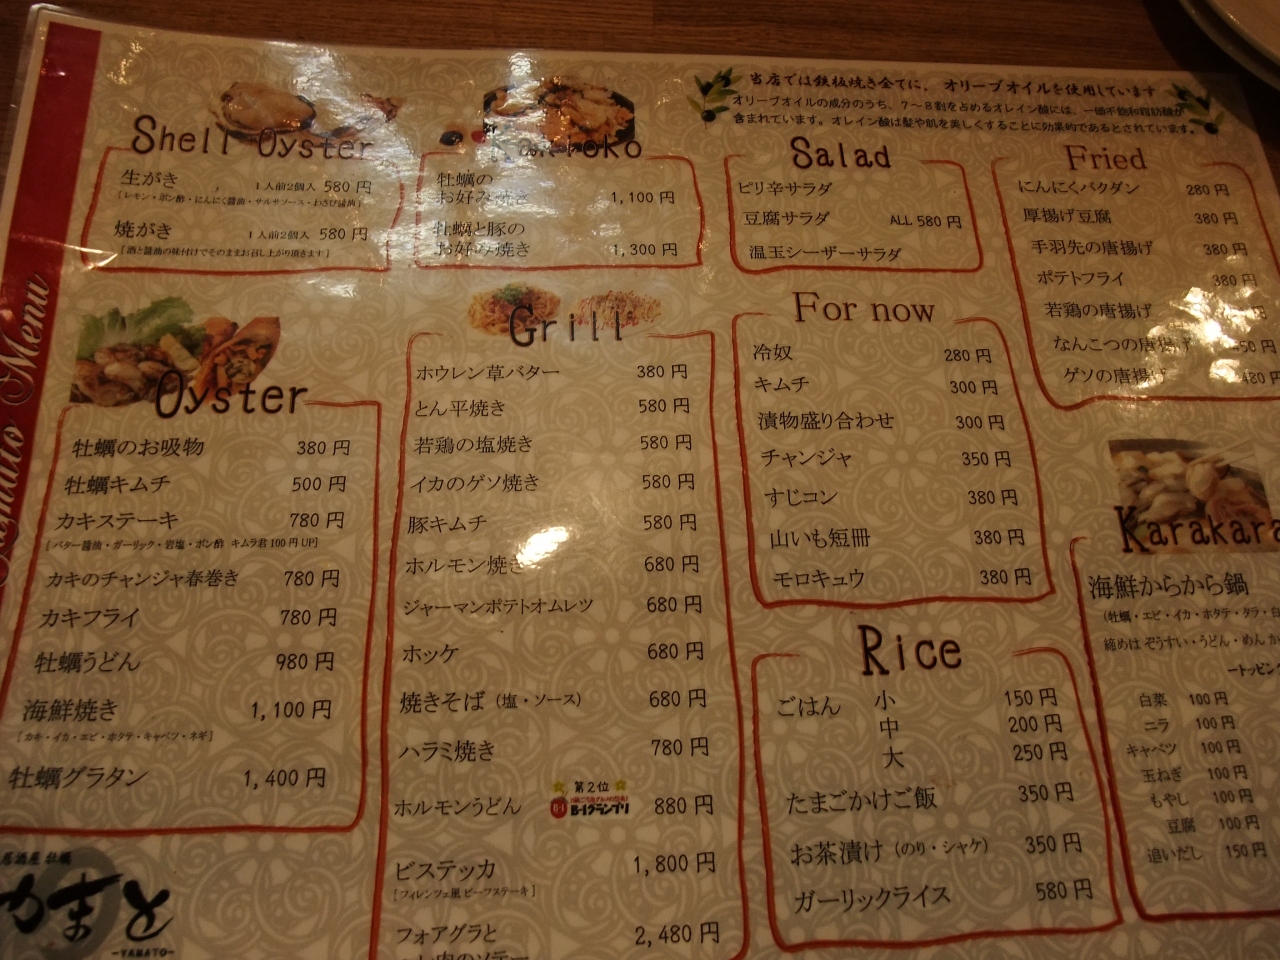 当店では鉄板焼き全てに、オリーブオイルを使用しています
オリーブオイルの成分のうち、7～8割を占めるオレイン酸には、一価不飽和脂肪酸が
含まれています。オレイン酸は髪や肌を美しくすることに効果的であるとされています。
Shell Oyster
生がき 1人前2個入 580円
[レモン・ポン酢・にんにく醤油・サルサソース・わさび醤油]
焼がき 1人前2個入 580円
[酒と醤油の味付けでそのままお召し上がり頂きます]
牡蠣の
お好み焼き 1,100円
牡蠣と豚の
お好み焼き 1,300円
Salad
ピリ辛サラダ
豆腐サラダ ALL 580円
温玉シーザーサラダ
Fried
にんにくバクダン 280円
厚揚げ豆腐 380円
手羽先の唐揚げ 380円
ポテトフライ 380円
若鶏の唐揚げ
なんこつの唐揚げ
ゲソの唐揚げ 480円
Oyster
牡蠣のお吸物 380円
牡蠣キムチ 500円
カキステーキ 780円
[バター醤油・ガーリック・岩塩・ポン酢 キムラ君100円UP]
カキのチャンジャ春巻き 780円
カキフライ 780円
牡蠣うどん 980円
海鮮焼き 1,100円
[カキ・イカ・エビ・ホタテ・キャベツ・ネギ]
牡蠣グラタン 1,400円
居酒屋 牡蠣
かまと
-YAMATO-
Grill
ホウレン草バター 380円
とん平焼き 580円
若鶏の塩焼き 580円
イカのゲソ焼き 580円
豚キムチ 580円
ホルモン焼き 680円
ジャーマンポテトオムレツ 680円
ホッケ 680円
焼きそば（塩・ソース） 680円
ハラミ焼き 780円
ホルモンうどん 第2位 B-1グランプリ 880円
ビステッカ 1,800円
[フィレンツェ風ビーフステーキ]
フォアグラと 2,480円
For now
冷奴 280円
キムチ 300円
漬物盛り合わせ 300円
チャンジャ 350円
すじコン 380円
山いも短冊 380円
モロキュウ 380円
Rice
ごはん 小 150円
中 200円
大 250円
たまごかけご飯 350円
お茶漬け（のり・シャケ） 350円
ガーリックライス 580円
Karakara
海鮮からから鍋
（牡蠣・エビ・イカ・ホタテ・タラ・白
締めは ぞうすい・うどん・めん か
ートッピン
白菜 100円
ニラ 100円
キャベツ 100円
玉ねぎ 100円
もやし 100円
豆腐 100円
追いだし 150円
Menu